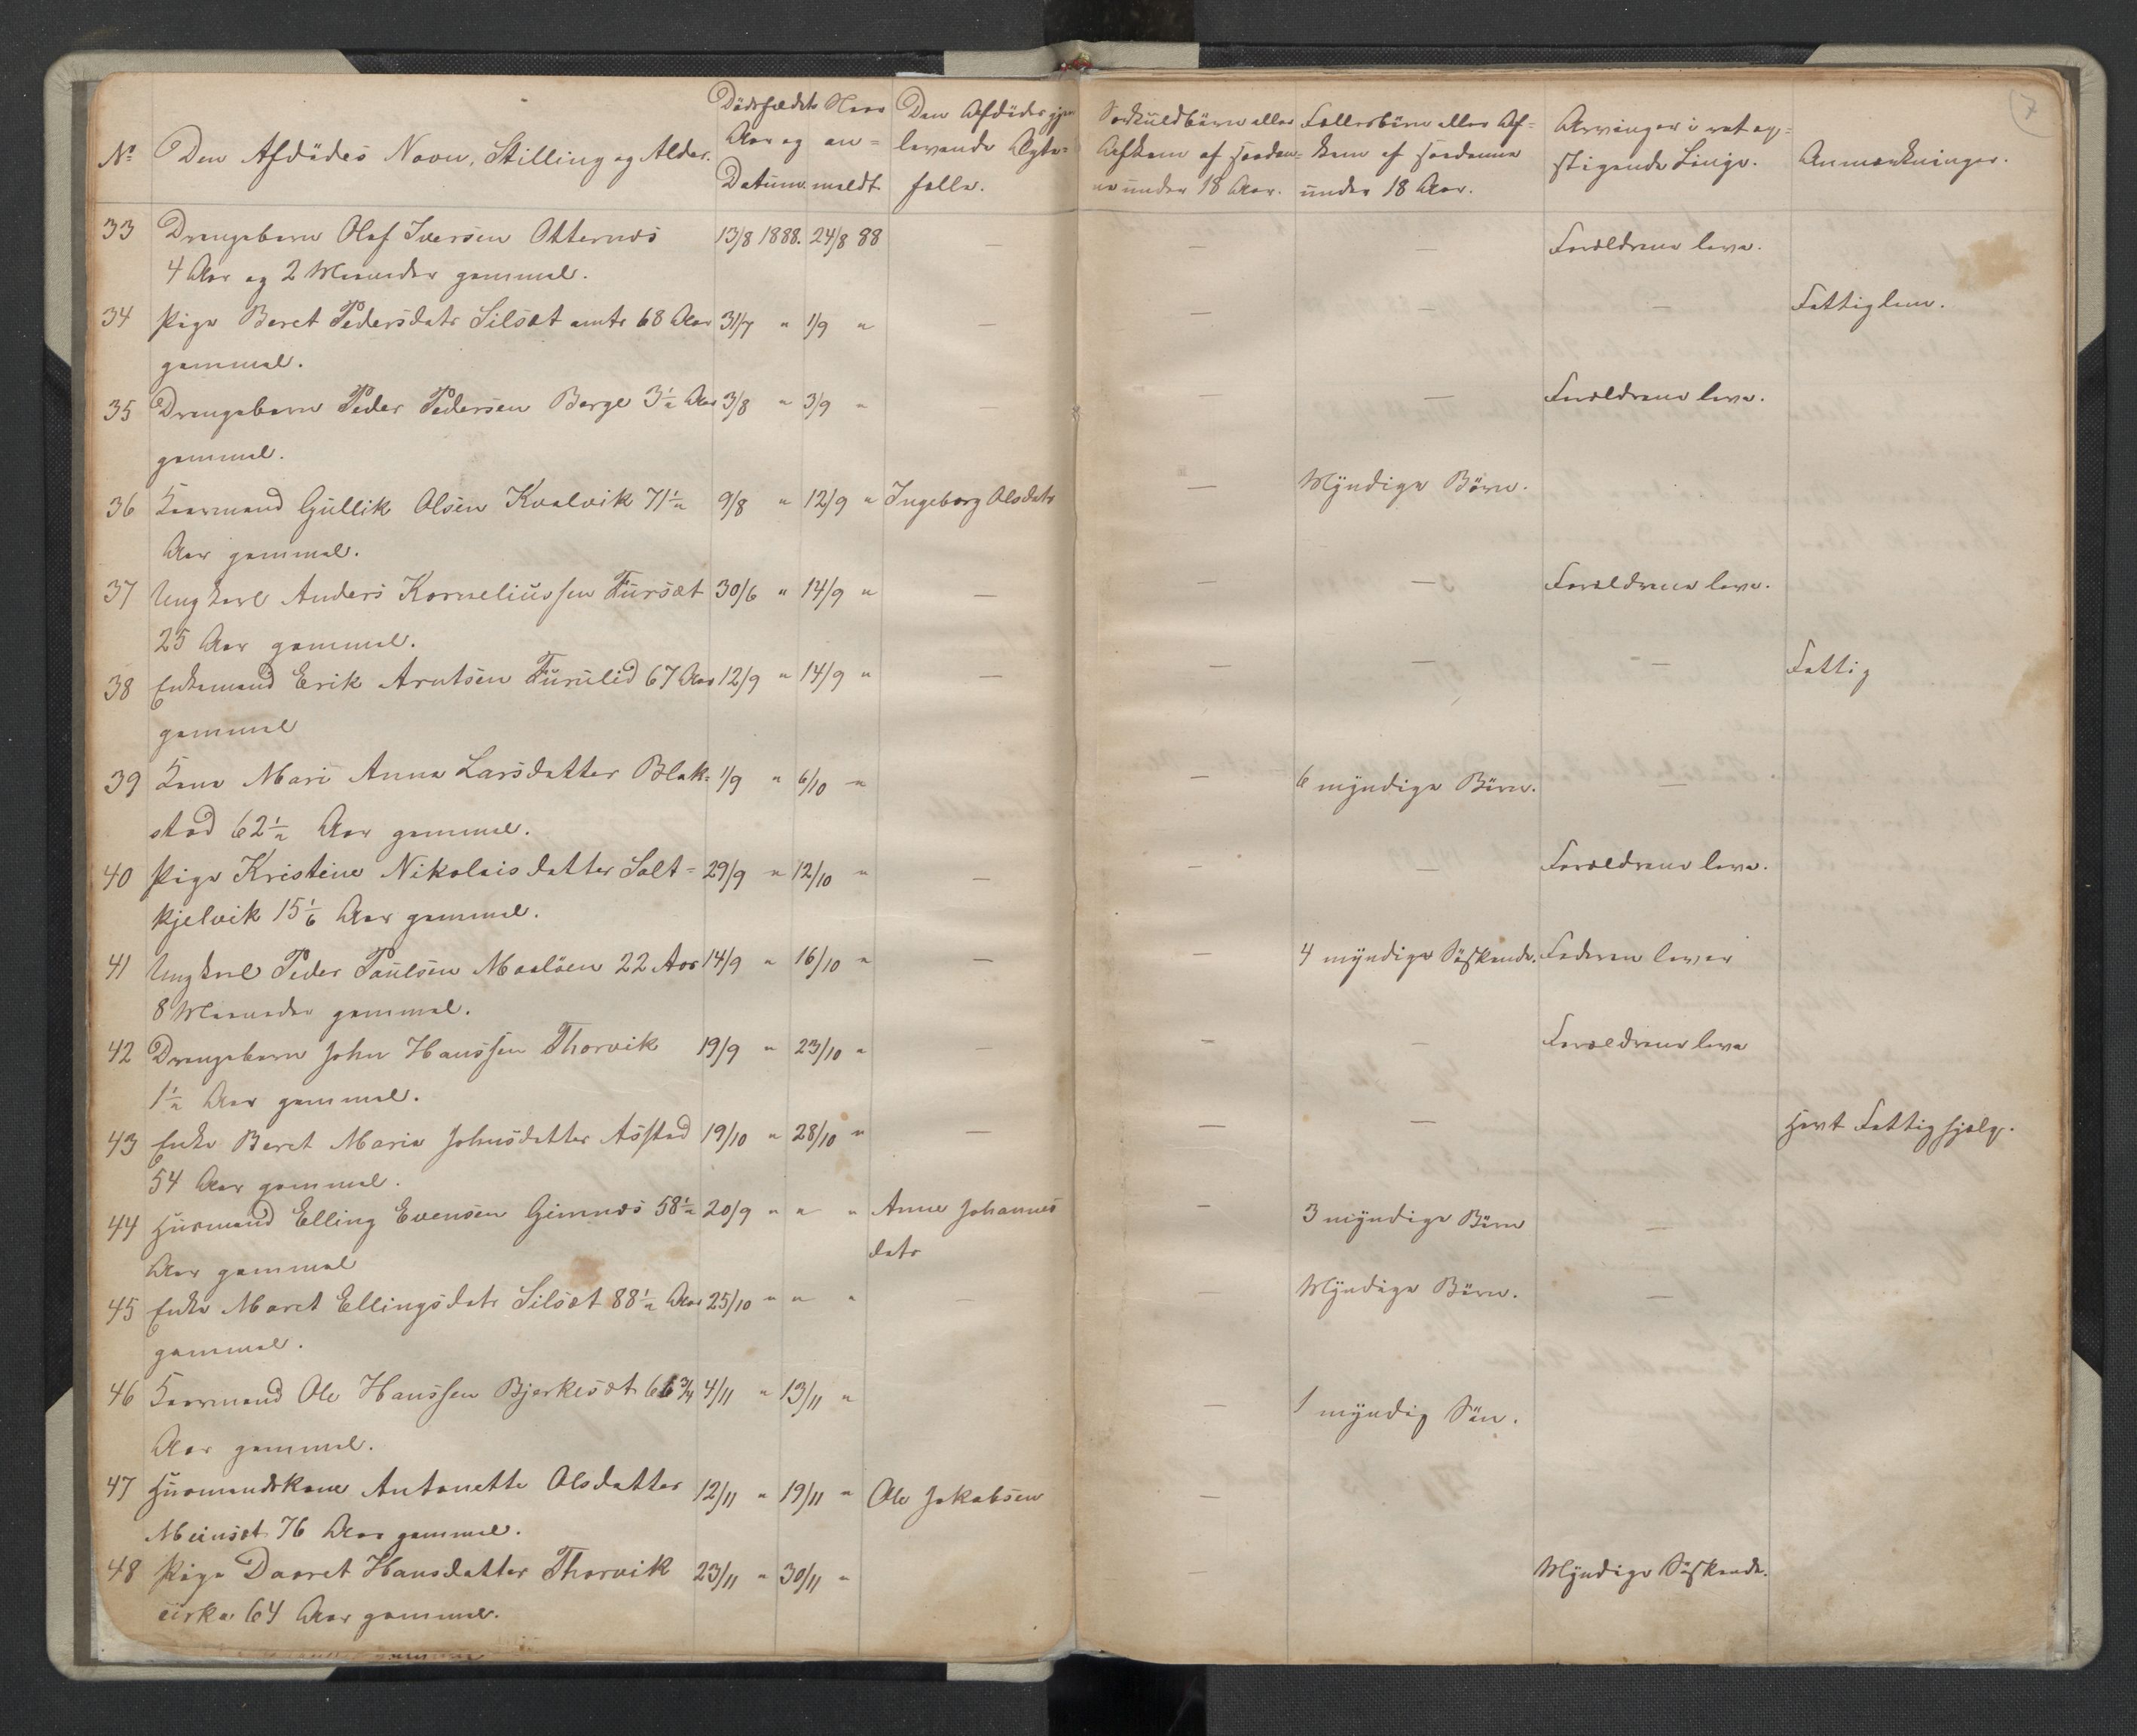 7
No Den Afdödes Navn, Stilling og Alder. Dödsfaldets Aar og Datum Naar anmeldt Den Afdödes gjenlevende Ægtefælle. Særkuldbörn eller Afkom af saadanne under 18 Aar. Fællesbörn eller Afkom af saadanne under 18 Aar. Arvinger i ret opstigende Linje. Anmærkninger.
33 Drengebarn Olaf Iversen Otternæs 13/8 1888. 24/8 88 — — — Forældrene leve.
4 Aar og 2 Maaneder gammel.
34 Pige Beret Pedersdatr Silsæt omtr 68 Aar 31/7 " 1/9 " — — — — Fattiglem.
gammel.
35 Drengebarn Peder Pedersen Berge 3½ Aar 3/8 " 3/9 " — — — Forældrene leve.
gammel.
36 Kaarmand Gullik Olsen Kvalvik 71½ 9/8 " 12/9 " Ingeborg Olsdatr — Myndige Börn.
Aar gammel.
37 Ungkarl Anders Korneliussen Fursæt 30/6 " 14/9 " — — — Forældrene leve.
25 Aar gammel.
38 Enkemand Erik Arntsen Furulid 67 Aar 12/9 " 14/9 " — — — — Fattig
gammel
39 Kone Mari Anna Larsdatter Blak= 1/9 " 6/10 " — 6 myndige Börn. —
stad 62½ Aar gammel.
40 Pige Kristine Nikolaisdatter Salt= 29/9 " 12/10 " — — — Forældrene leve.
kjelvik 15 1/6 Aar gammel.
41 Ungkarl Peder Paulsen Maalöen 22 Aar 14/9 " 16/10 " — — 4 myndige Söskende. Faderen lever
8 Maaneder gammel.
42 Drengebarn John Hanssen Thorvik 19/9 " 23/10 " — — — Forældrene leve
1½ Aar gammel.
43 Enke Beret Maria Johnsdatter Aspstad 19/10 " 28/10 " — — — Havt Fattighjælp.
54 Aar gammel.
44 Husmand Elling Evensen Gimnæs 58½ 20/9 " " " Anne Johannes — 3 myndige Börn —
Aar gammel datr
45 Enke Maret Ellingsdatr Silsæt 88½ Aar 25/10 " " " — — Myndige Börn. —
gammel.
46 Kaarmand Ole Hanssen Bjerkesæt 66¾ 4/11 " 13/11 " — 1 myndig Sön.
Aar gammel.
47 Husmandskone Antonette Olsdatter 12/11 " 19/11 " Ole Jakobsen —
Meinsæt 76 Aar gammel.
48 Pige Daaret Hansdatter Thorvik 23/11 " 30/11 " — Myndige Söskende.
cirka 64 Aar gammel.